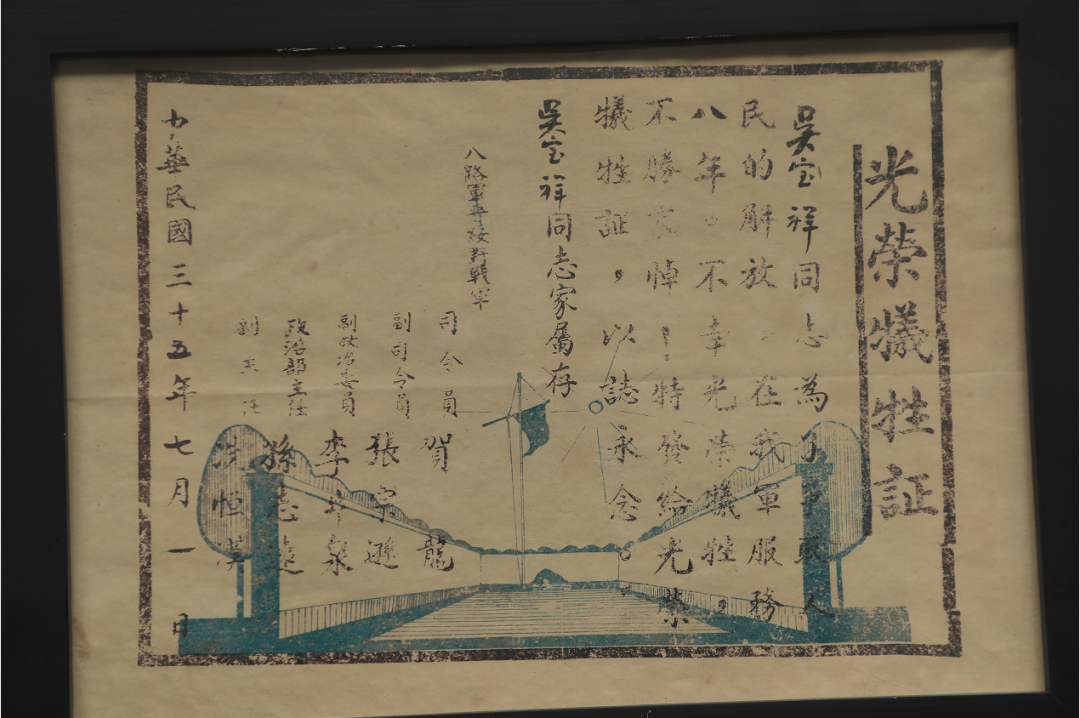 光榮犧牲証
吳宝祥同志為了爭取人
民的解放，在我軍服務
八年。不幸光榮犧牲。
不勝哀悼！特發給光榮
犧牲証，以誌永念。
吳宝祥同志家屬存
八路軍晋綏野戰軍
司令員 賀龍
副司令員 張宗遜
副政治委員 李井泉
政治部主任 孫志遠
副主任 冼恒漢
中華民國三十五年七月一日